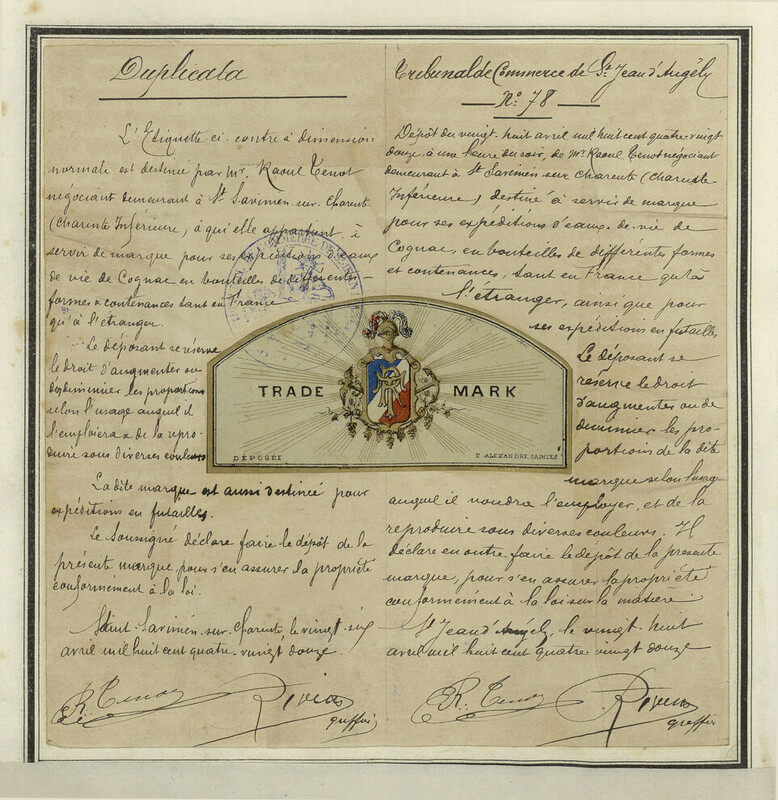 Duplicata
L'Etiquette ci-contre à dimension
normale est destinée par Mr. Raoul Tenot
négociant demeurant à St Savinien sur Charente
(Charente Inférieure), à qui elle appartient, à
servir de marque pour ses expéditions d'eaux
de vie de Cognac en bouteilles de différentes
formes & contenances tant en France
qu'à l'étranger.
Le déposant se réserve
le droit d'augmenter ou
de diminuer les proportions
selon l'usage auquel il
l'emploiera & de la repro-
duire sous diverses couleurs
La dite marque est aussi destinée pour
expéditions en futailles.
Le Soussigné déclare faire le dépôt de la
présente marque pour s'en assurer la propriété
conformément à la loi.
Saint-Savinien-sur-Charente, le vingt-six
avril mil huit cent quatre-vingt douze.
R. Tenot
greffier
Tribunal de Commerce de St Jean d'Angély
No. 78
Dépôt du vingt-huit avril mil huit cent quatre vingt
douze, à une heure du soir, de Mr Raoul Tenot négociant
demeurant à St Savinien sur Charente (Charente
Inférieure), destiné à servir de marque
pour ses expéditions d'eaux-de-vie de
Cognac, en bouteilles de différentes formes
et contenances, tant en France qu'à
l'étranger, ainsi que pour
ses expéditions en futailles
Le déposant se
réserve le droit
d'augmenter ou de
diminuer les pro-
portions de la dite
marque selon l'usage
auquel il voudra l'employer, et de la
reproduire sous diverses couleurs. Il
déclare en outre faire le dépôt de la présente
marque, pour s'en assurer la propriété
conformément à la loi sur la matière
St Jean d'Angély, le vingt-huit
avril mil huit cent quatre vingt douze
R. Tenot
greffier
TRADE MARK
DÉPOSÉE
E. ALEXANDRE SAINTES